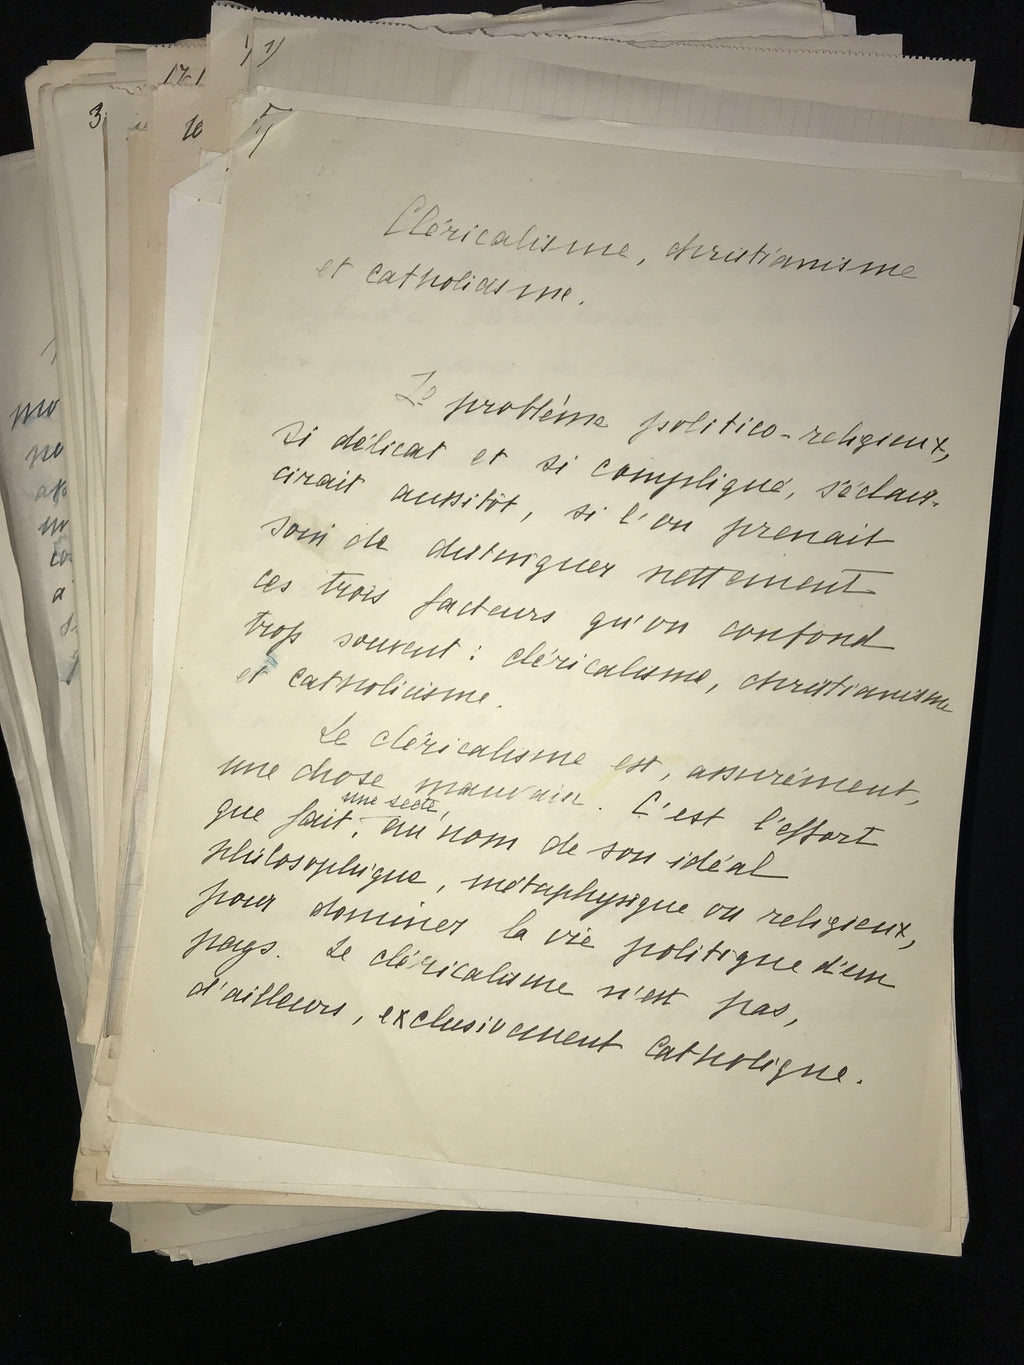 1/ 1/
17-1
3
10
1/
Cléricalisme, christianisme
et catholicisme.
Le problème politico-religieux,
si délicat et si compliqué, s'éclair-
cirait aussitôt, si l'on prenait
soin de distinguer nettement
ces trois facteurs qu'on confond
trop souvent : cléricalisme, christianisme
et catholicisme.
Le cléricalisme est, assurément,
une chose mauvaise. C'est l'effort
que fait, une secte, au nom de son idéal
philosophique, métaphysique ou religieux,
pour dominer la vie politique d'un
pays. Le cléricalisme n'est pas,
d'ailleurs, exclusivement catholique.